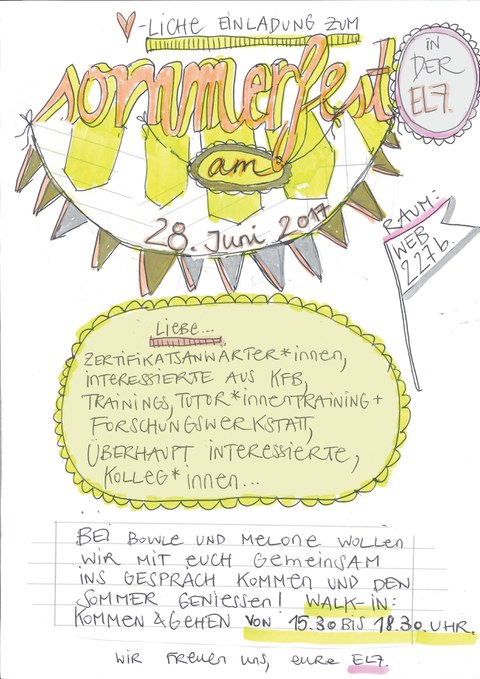 ♡-LICHE EINLADUNG ZUM
sommerfest
IN
DER
EL7.
am
28. Juni 2017
RAUM:
WEB
227b.
LIEBE...
ZERTIFIKATSANWÄRTER*innen,
INTERESSIERTE AUS KFB,
TRAININGS, TUTOR*innenTRAINING +
FORSCHUNGSWERKSTATT,
ÜBERHAUPT INTERESSIERTE,
KOLLEG*innen...
BEI BOWLE UND MELONE WOLLEN
WIR MIT EUCH GEMEINSAM
INS GESPRÄCH KOMMEN UND DEN
SOMMER GENIESSEN! WALK-IN:
KOMMEN & GEHEN VON 15.30 BIS 18.30 UHR.
WIR FREUEN UNS, EURE EL7.